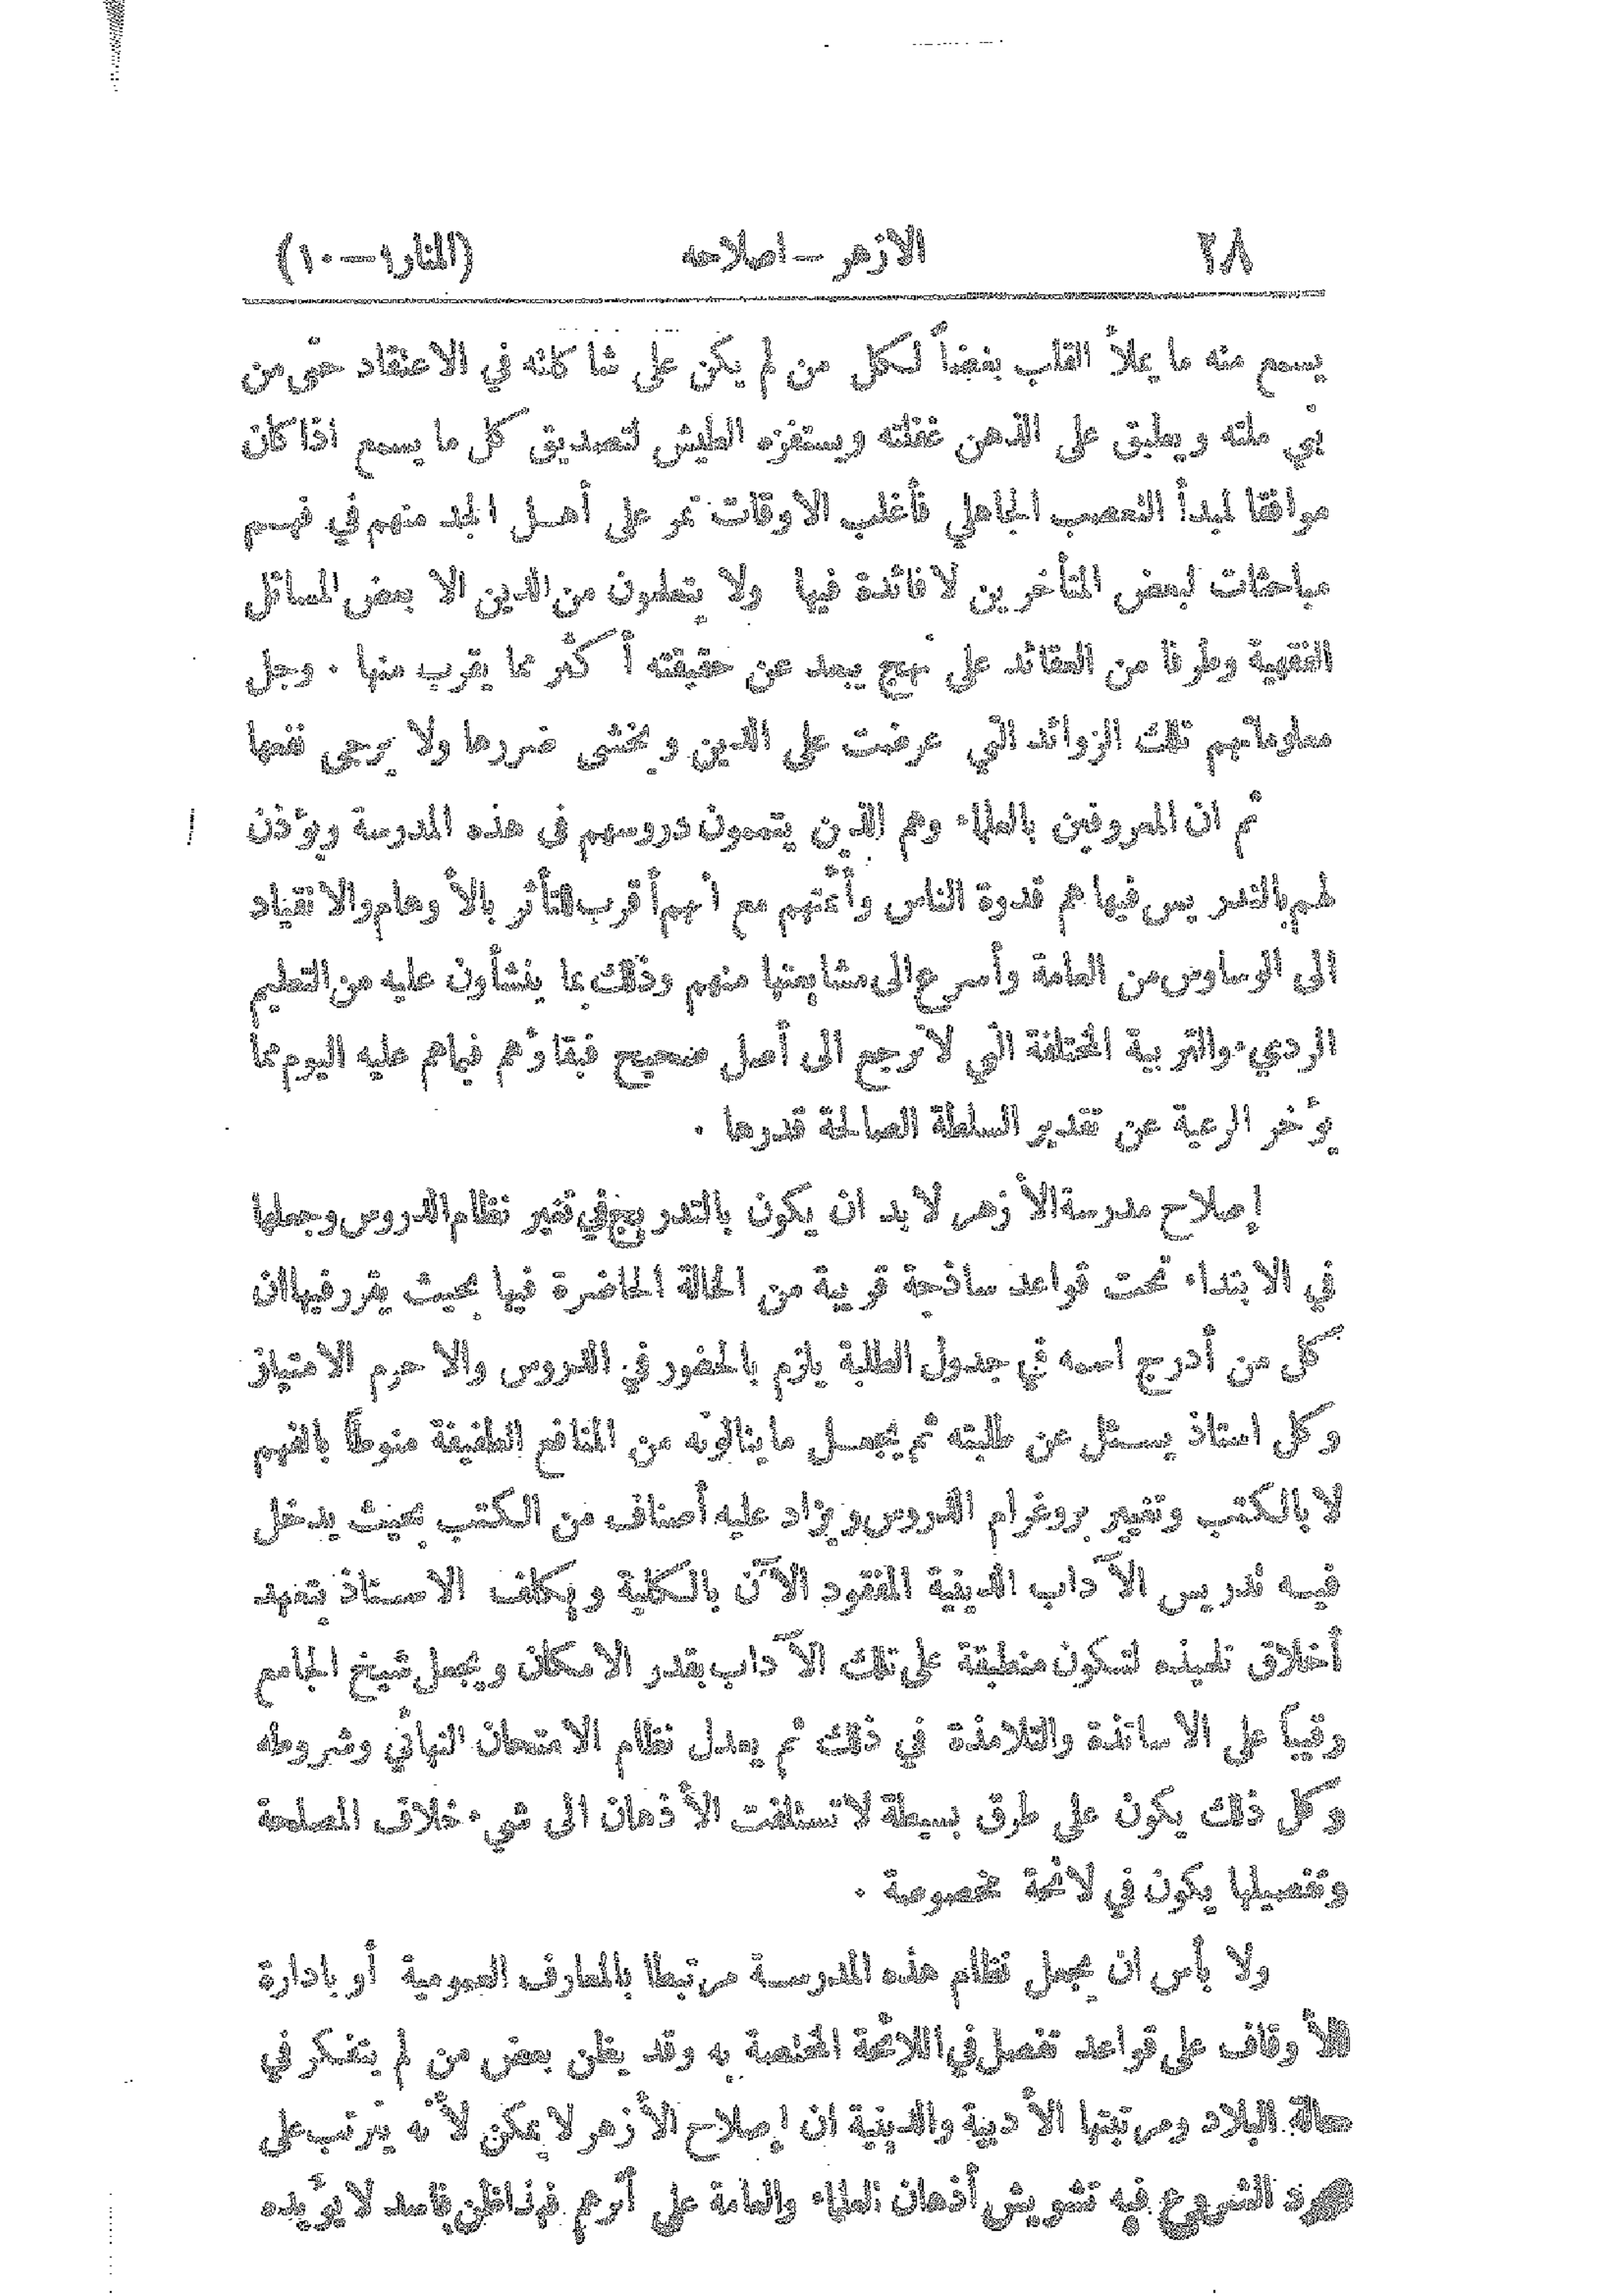 ٢٨ الازهر — اصلاحه (المنار ١ — ١٠)
يسمع منه ما يملأ القلب بغضاً لكل من لم يكن على شاكلته في الاعتقاد حتى من
بني ملته ويطبق على الذهن غفلته ويستفزه الطيش لتصديق كل ما يسمع اذا كان
موافقا لمبدأ التعصب الجاهلي فأغلب الاوقات تمر على أهل الجد منهم في فهم
مباحثات لبعض المتأخرين لا فائدة فيها ولا يتعلمون من الدين الا بعض المسائل
الفقهية وطرفا من العقائد على نهج يبعد عن حقيقته أكثر مما يقرب منها . وجل
معلوماتهم تلك الزوائد التي عرضت على الدين ويخشى ضررها ولا يرجى نفعها
ثم ان المعروفين بالعلماء وهم الذين يتممون دروسهم فى هذه المدرسة ويؤذن
لهم بالتدريس فيها هم قدوة الناس وأئمتهم مع أنهم أقرب للتأثر بالأوهام والانقياد
الى الوساوس من العامة وأسرع الى مشايعتها منهم وذلك بما ينشأون عليه من التعليم
الردي والتربية المختلفة التي لا ترجع الى أصل صحيح فبقاؤهم فيما هم عليه اليوم مما
يؤخر الرعية عن تقدير السلطة الصالحة قدرها .
إصلاح مدرسة الأزهر لا بد ان يكون بالتدريج في تغيير نظام الدروس وجعلها
في الابتداء تحت قواعد ساذجة قريبة من الحالة الحاضرة فيها بحيث يقرر فيها ان
كل من أدرج اسمه في جدول الطلبة يلزم بالحضور في الدروس والا حرم الامتياز
وكل استاذ يسئل عن طلبته ثم يجعل ما ينالونه من المنافع الطفيفة منوطاً بالفهم
لا بالكتب وتغيير بروغرام الدروس ويزاد عليه أصناف من الكتب بحيث يدخل
فيه تدريس الآداب الدينية المفقود الآن بالكلية ويكلف الاستاذ بتعهد
أخلاق تلميذه لتكون منطبقة على تلك الآداب بقدر الامكان ويجعل شيخ الجامع
رقيباً على الاساتذة والتلامذة في ذلك ثم يعدل نظام الامتحان النهائي وشروطه
وكل ذلك يكون على طرق بسيطة لا تستلفت الأذهان الى شيء خلاف المصلحة
وتفصيلها يكون في لائحة مخصوصة .
ولا بأس ان يجعل نظام هذه المدرسة مرتبطا بالمعارف العمومية أو بادارة
الأوقاف على قواعد تفصل في اللائحة المختصة به وقد يظن بعض من لم يتفكر في
حالة البلاد ومرتبتها الأدبية والدينية ان إصلاح الأزهر لا يمكن لأنه يترتب على
مجرد الشروع فيه تشويش أذهان العلماء والعامة على أثرهم فهذا ظن فاسد لا يؤيده